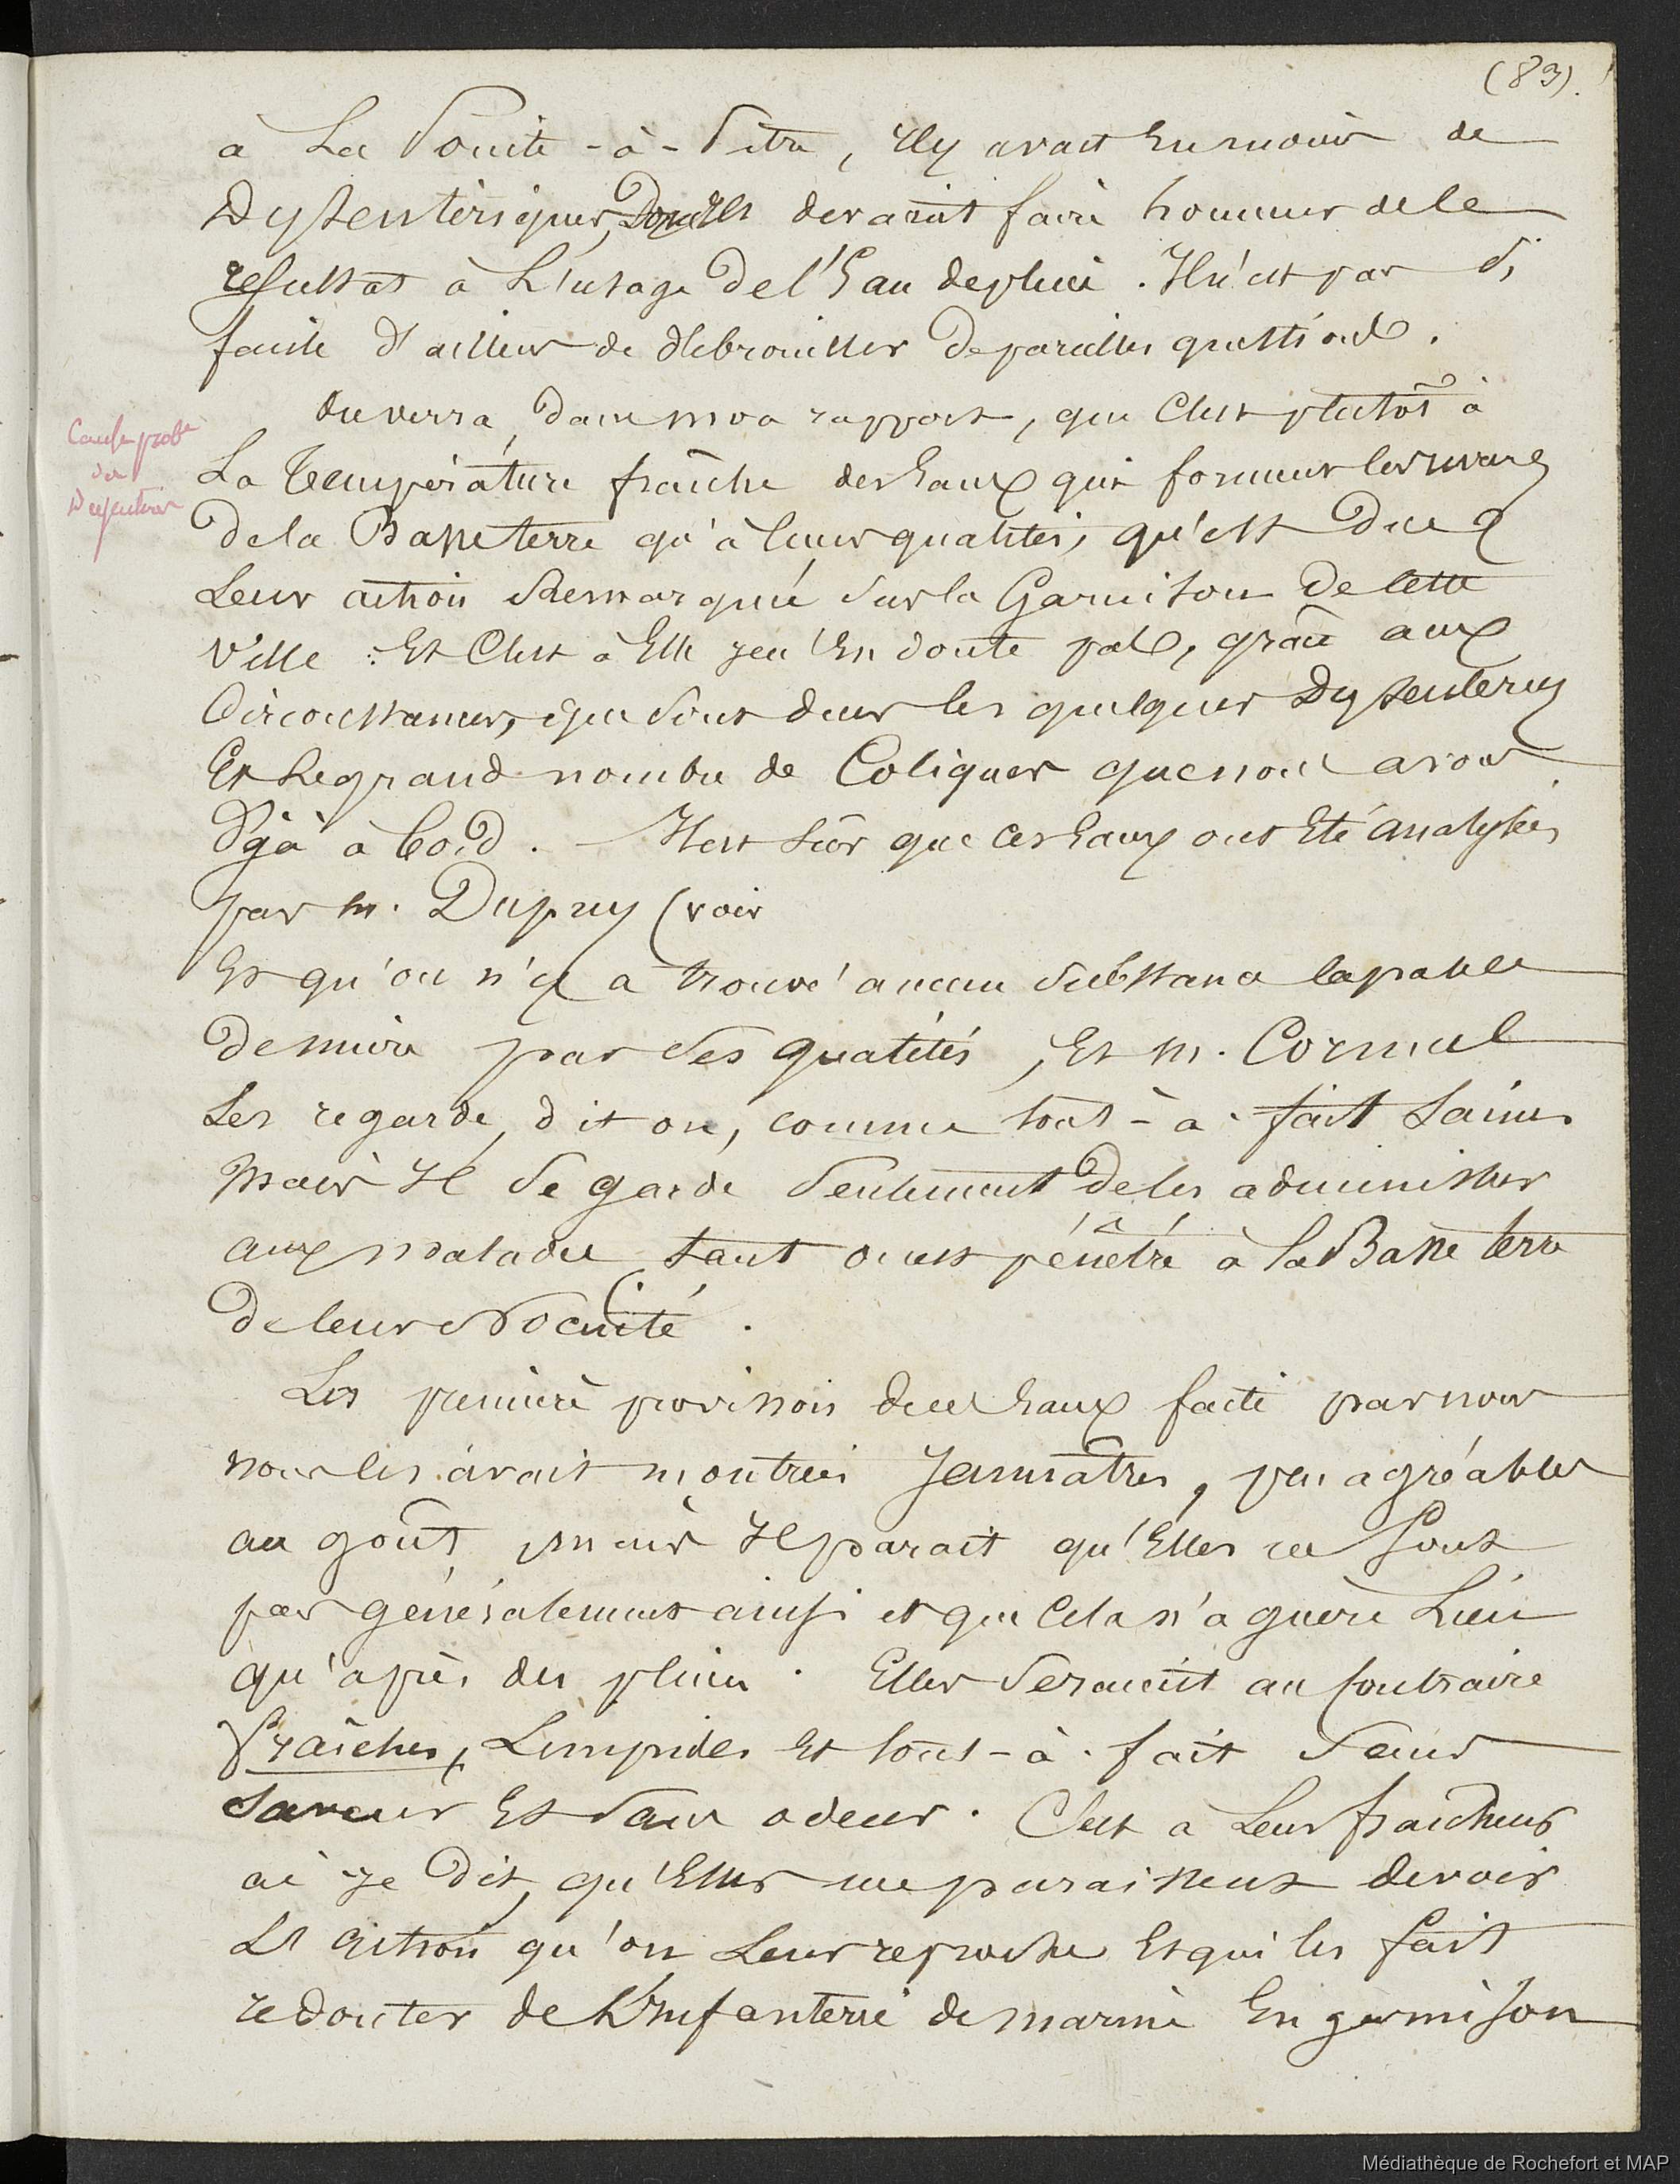 (83).
à La Pointe-à-Pitre, s'il y avait En moins de
Dysenteriques, devraient faire honneur de le
resultat à L'usage De l'Eau de pluie. Il n'est pas si
facile D'ailleurs de débrouiller De pareilles questions.
On verra, dans mon rapport, que C'est plutôt à
Cause prob
des
Dysenteries
La Température fraîche des Eaux qui forment les
De la Basse terre qu'à leurs qualités, qu'est Due
Leur action Remarquée sur la Garnison De cette
Ville : Et C'est à Elle je n'En doute pas, grâce aux
Circonstances, que sont dues les quelques Dysenteries
Et Le grand nombre de Coliques que nous avons
Déjà à bord. - Il est sûr que ces Eaux ont Eté analysées
par M. Dupuy (voir
Et qu'on n'y a trouvé aucune substance capable
De nuire par ses qualités, Et M. Cornuel
Les regarde, dit on, comme tout-à-fait saines
Mais Il se garde seulement De les administrer
aux malades tant on est pénétré à la Basse terre
De leur Nocuité.
La première provision d'Eaux faite par nous
nous les avait montrées Jaunâtres, peu agréables
au goût, mais Il parait qu'Elles ne sont
pas généralement ainsi et que Cela n'a guère Lieu
qu'après des pluies. Elles seraient au Contraire
Fraîches, Limpides Et tout-à-fait sans
saveur Et sans odeur. C'est à Leur fraicheur
ai Je Dit, qu'Elles me paraissent devoir
L'action qu'on Leur reproche Et qui les fait
redouter de L'Infanterie de marine En garnison
Médiathèque de Rochefort et MAP